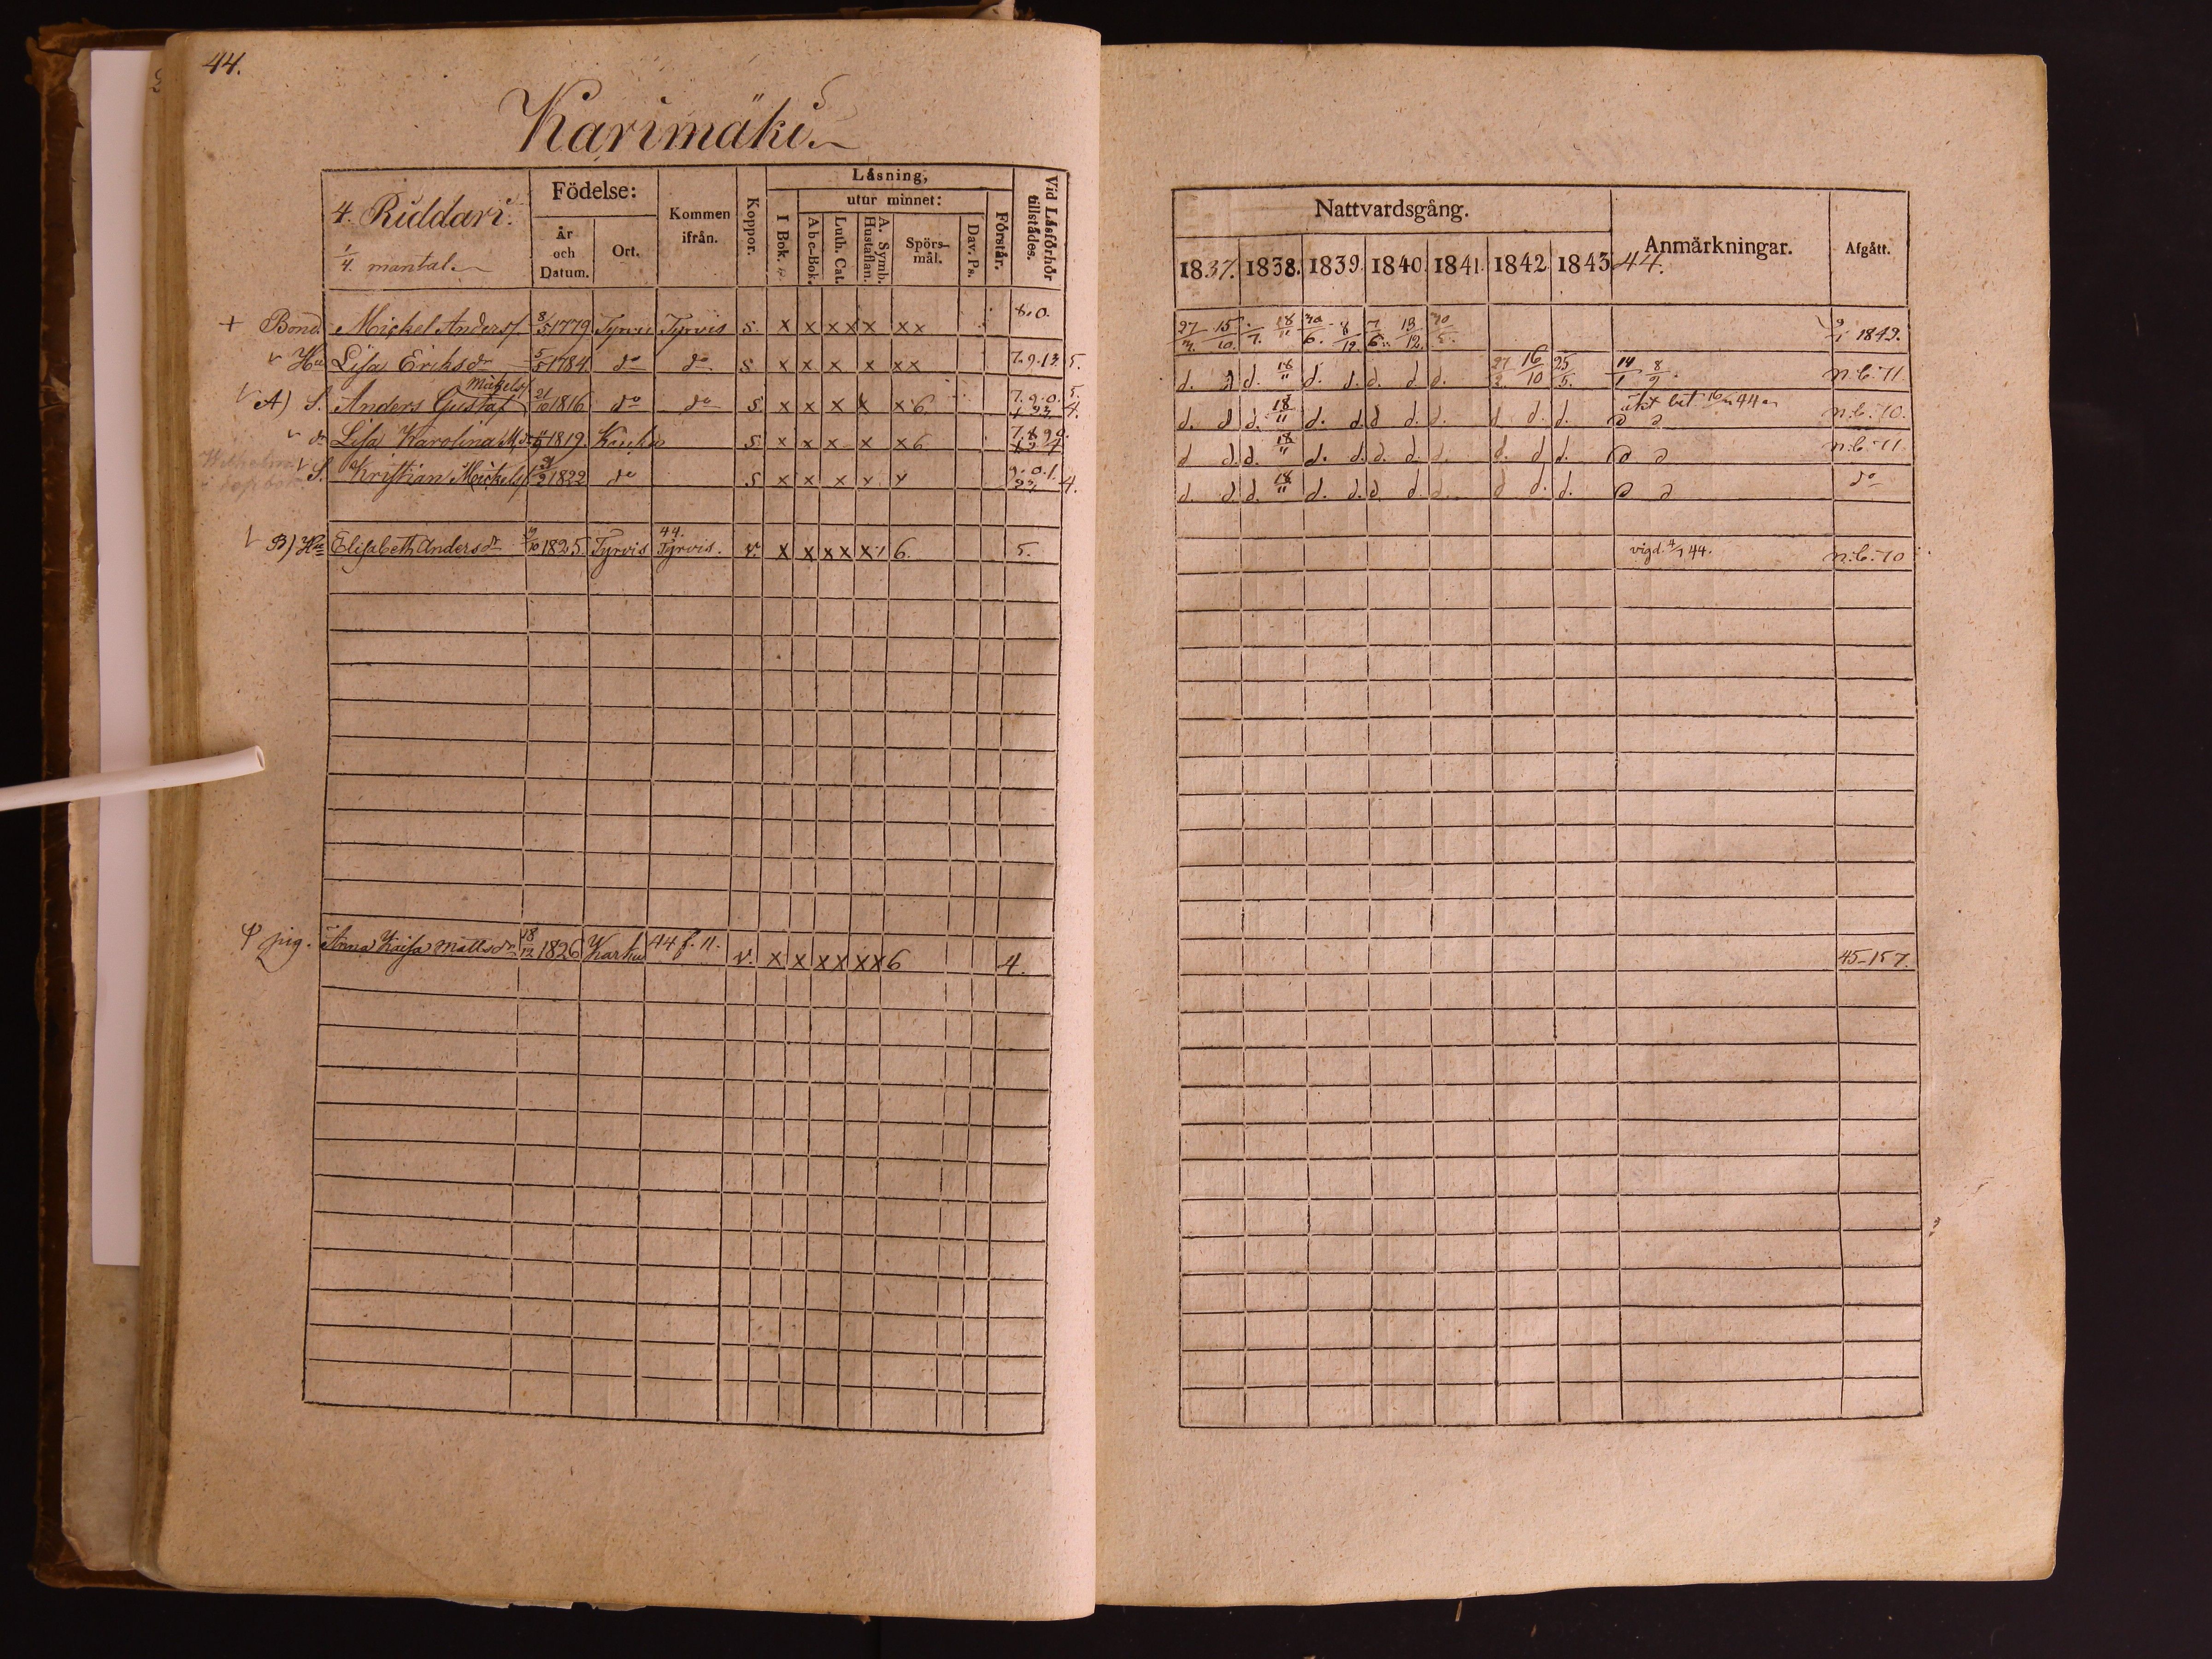 44.
Karimäki
4. Riddari.
1/4. mantal.
Födelse:
År och Datum.
Ort.
Kommen ifrån.
Koppor.
Läsning,
I Bok.
utur minnet:
Abc-Bok.
Luth. Cat.
A. Symb. Hustaflan.
Spörs-mål.
Dav. Ps.
Förstår.
Vid Läsförhör tillstädes.
+ Bond. Mickel Anders/. 8/5 1779 Tyrvis Tyrvis s. x x x x x x x 8.0.
v Hu Lisa Eriksdr 5/5 1784 do do s x x x x x x 7.9.13 5.
v A) S. Anders Gustaf Mickels/. 1816 do do s x x x x x 6. 7.9.0. 5. 4.
v dr Lisa Karolina M.dr 1819. s x x x x x 6
v S. Kristian Mickels/. 1822 do s x x x x x 9.0.1. 4.
v B) Hu Elisabeth Andersdr 1825 Tyrvis 44. Tyrvis. v. x x x x x 6. 5.
pig. Anna Kaisa Mattsdr 18/12 1826 Karku 44 f. 11. v. x x x x x x 6 4.
Nattvardsgång.
1837. 1838. 1839. 1840. 1841. 1842 1843 44.
Anmärkningar.
Afgått.
27/3. 15/10. 18/11 30/6. 8/12 7/6. 13/12. 30/5. 1842.
d. d d. 18/11 d. d. d. d. d. 27/2 16/10 25/5. 14/1 8/9. n.b. 11.
d. d d. 18/11 d. d. d d. d. d d. d. 44 n.b. 10.
d d. d. 18/11 d. d. d. d. d. d. d d. d d n.b. 11.
d. d. d. 18/11 d. d. d. d. d. d d. d. d d do
vigd. 4/7 44. n.b. 10
45-157.